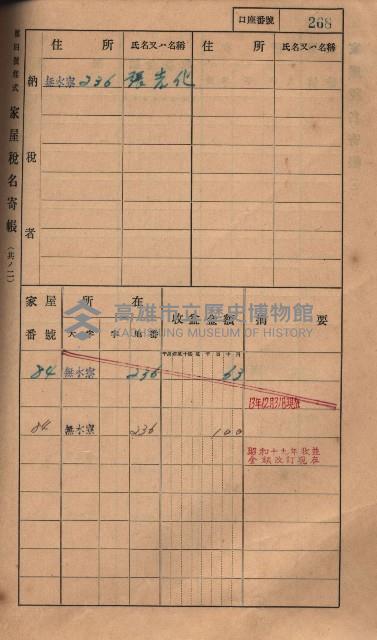 口座番號 268
第四號樣式 家屋稅名寄帳 （其ノ二）
住所 氏名又ハ名稱 住所 氏名又ハ名稱
納稅者
無水寮 236 張
家屋番號 所在 大字 字 地番 收益金額 摘要
高雄市立歷史博物館
KAOHSIUNG MUSEUM OF HISTORY
84 無水寮 236 63
13年12月31日現在
84 無水寮 236 100
昭和十九年收益
金額改訂現在